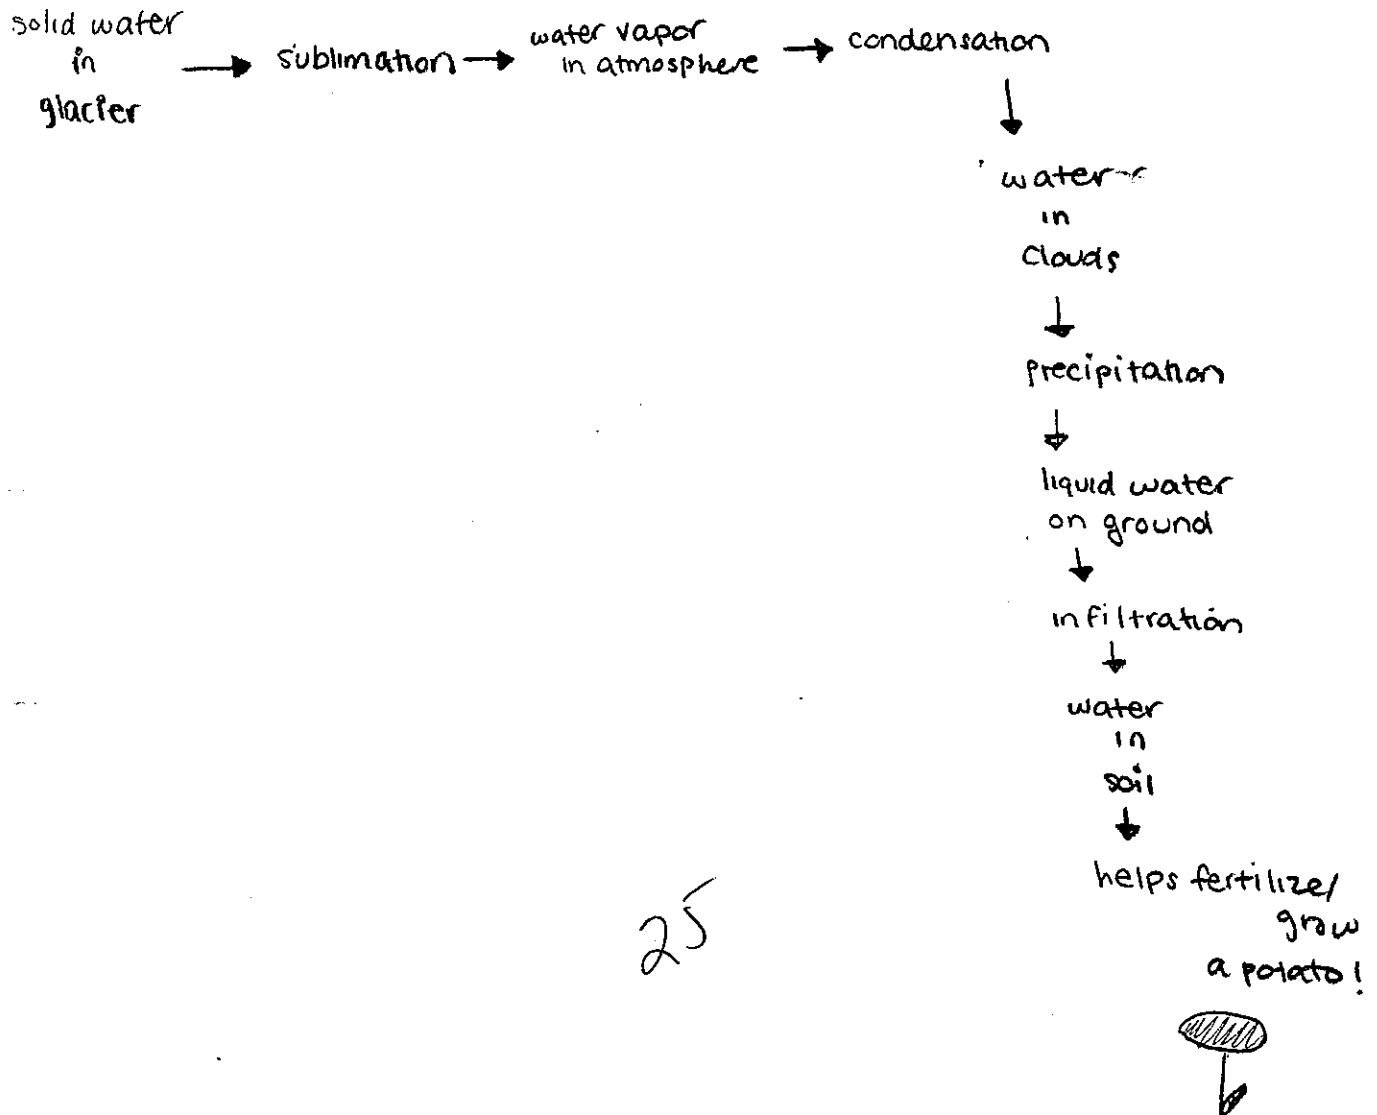 solid water
in
glacier
sublimation
water vapor
in atmosphere
condensation
water
in
Clouds
precipitation
liquid water
on ground
infiltration
water
in
soil
helps fertilize/
grow
a potato!
25